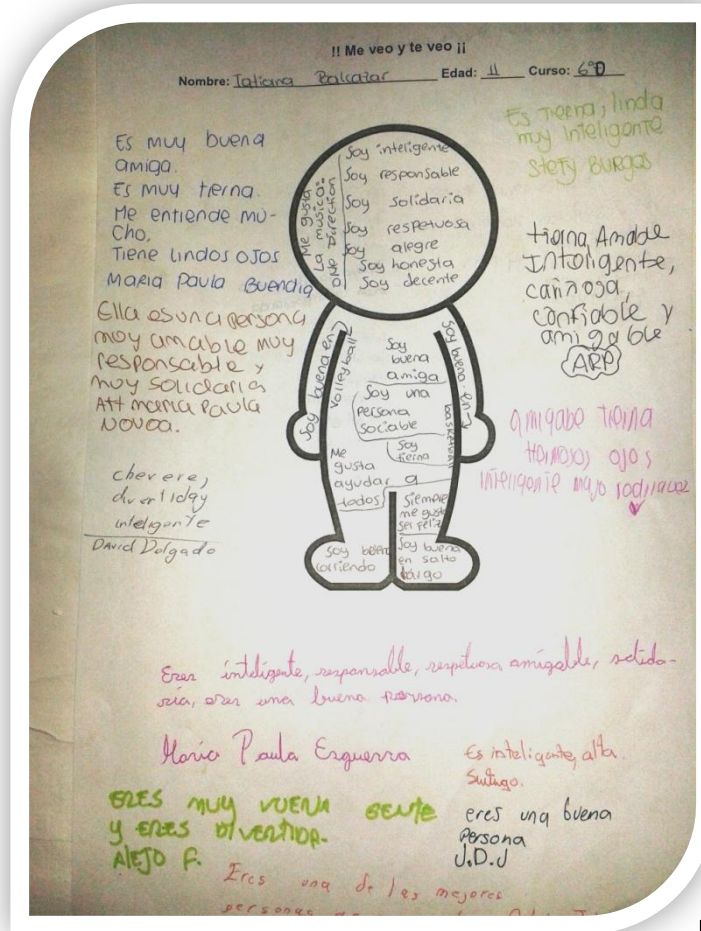 !! Me veo y te veo ¡¡
Nombre: Tatiana Balcazar Edad: 11 Curso: 6°D
Es muy buena
amiga.
Es muy tierna.
Me entiende mu-
cho.
Tiene lindos ojos
Maria Paula Buendia
Ella es una persona
muy amable muy
responsable y
muy solidaria
Att maria Paula
Novoa.
chevere,
divertida y
inteligente
David Delgado
Me gusta
La musica:
One Direction
Soy inteligente
Soy responsable
Soy solidaria
Soy respetuosa
Soy alegre
Soy honesta
Soy decente
Soy buena en
Volleyball
Soy
buena
amiga
Soy una
persona
sociable
Soy
tierna
Me
gusta
ayudar a
todos
Soy buena en
basketball
Siempre
me gusta
ser feliz
Soy buena
corriendo
Soy buena
en salto
largo
Es tierna, linda
muy inteligente
Stefy Burgos
tierna, Amable
Inteligente,
cariñosa,
confiable y
amigable
ARP
amigabe tierna
Hermosos ojos
inteligente majo rodriguez
Eres inteligente, responsable, respetuosa amigable, solida-
ria, eres una buena persona.
Maria Paula Esguerra
Es inteligente, alta.
ERES MUY VUENA GENTE
Y ERES DIVERTIDA.
ALEJO F.
eres una buena
persona
J.D.J
Eres una de las mejores
personas